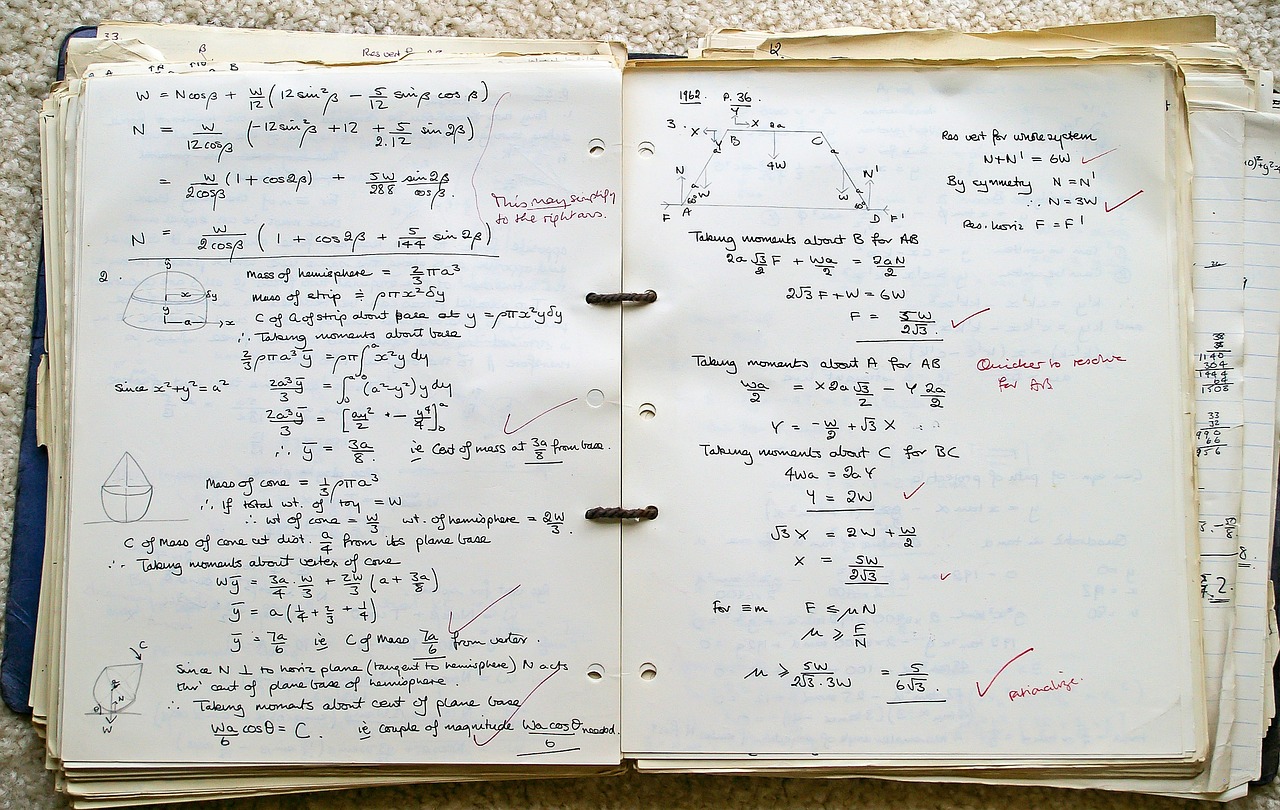 33.
β
Res vert
A B
W = N cos β + W/12 (12 sin²β − 5/12 sin β cos β)
N = W/(12 cos β) (−12 sin²β + 12 + 5/2.12 sin 2β)
= W/(2 cos β) (1 + cos 2β) + 5W/288 sin 2β/cos β.
This may simplify
to the right ans.
N = W/(2 cos β) (1 + cos 2β + 5/144 sin 2β)
2.
y
x δy
y
a x
Mass of hemisphere = 2/3 πa³
Mass of strip ≑ ρπx²δy
C of G of strip about base at y = ρπx²yδy
∴ Taking moments about base
2/3 ρπa³ȳ = ρπ∫₀ᵃ x²y dy
Since x²+y² = a² 2a³ȳ/3 = ∫₀ᵃ (a²−y²) y dy
2a³ȳ/3 = [ay²/2 − y⁴/4]₀ᵃ
∴ ȳ = 3a/8 ie Cent of mass at 3a/8 from base.
Mass of cone = 1/3 ρπa³
∴ If total wt. of toy = W
∴ wt of cone = W/3 wt. of hemisphere = 2W/3.
C of Mass of cone at dist. a/4 from its plane base
∴ Taking moments about vertex of cone
Wȳ = 3a/4 · W/3 + 2W/3 (a + 3a/8)
ȳ = a(1/4 + 2/3 + 1/4)
ȳ = 7a/6 ie C of Mass 7a/6 from vertex.
C
N
θ
W
Since N ⊥ to horiz plane (tangent to hemisphere) N acts
thro' cent of plane base of hemisphere.
∴ Taking moments about cent of plane base
Wa/6 cos θ = C. ie couple of magnitude Wa cos θ/6 needed.
62.
1962. P. 36.
Y
3. X X 2a
Y B C
a a
4W
N a a N'
W W
60° 60°
F A D F'
Res vert for whole system
N+N' = 6W
By symmetry N = N'
∴ N = 3W
Res. horiz F = F'
Taking moments about B for AB
2a √3/2 F + Wa/2 = 2aN/2
2√3 F + W = 6W
F = 5W/2√3.
Taking moments about A for AB
Quicker to resolve
for AB
Wa/2 = X 2a √3/2 − Y 2a/2
Y = −W/2 + √3 X
Taking moments about C for BC
4Wa = 2aY
Y = 2W
√3 X = 2W + W/2
X = 5W/2√3
For ≡m F ≤ μN
μ ≥ F/N
μ ≥ 5W/2√3.3W = 5/6√3.
rationalize.
38
38
1140
304
1444
64
1508
33
32
990
66
956